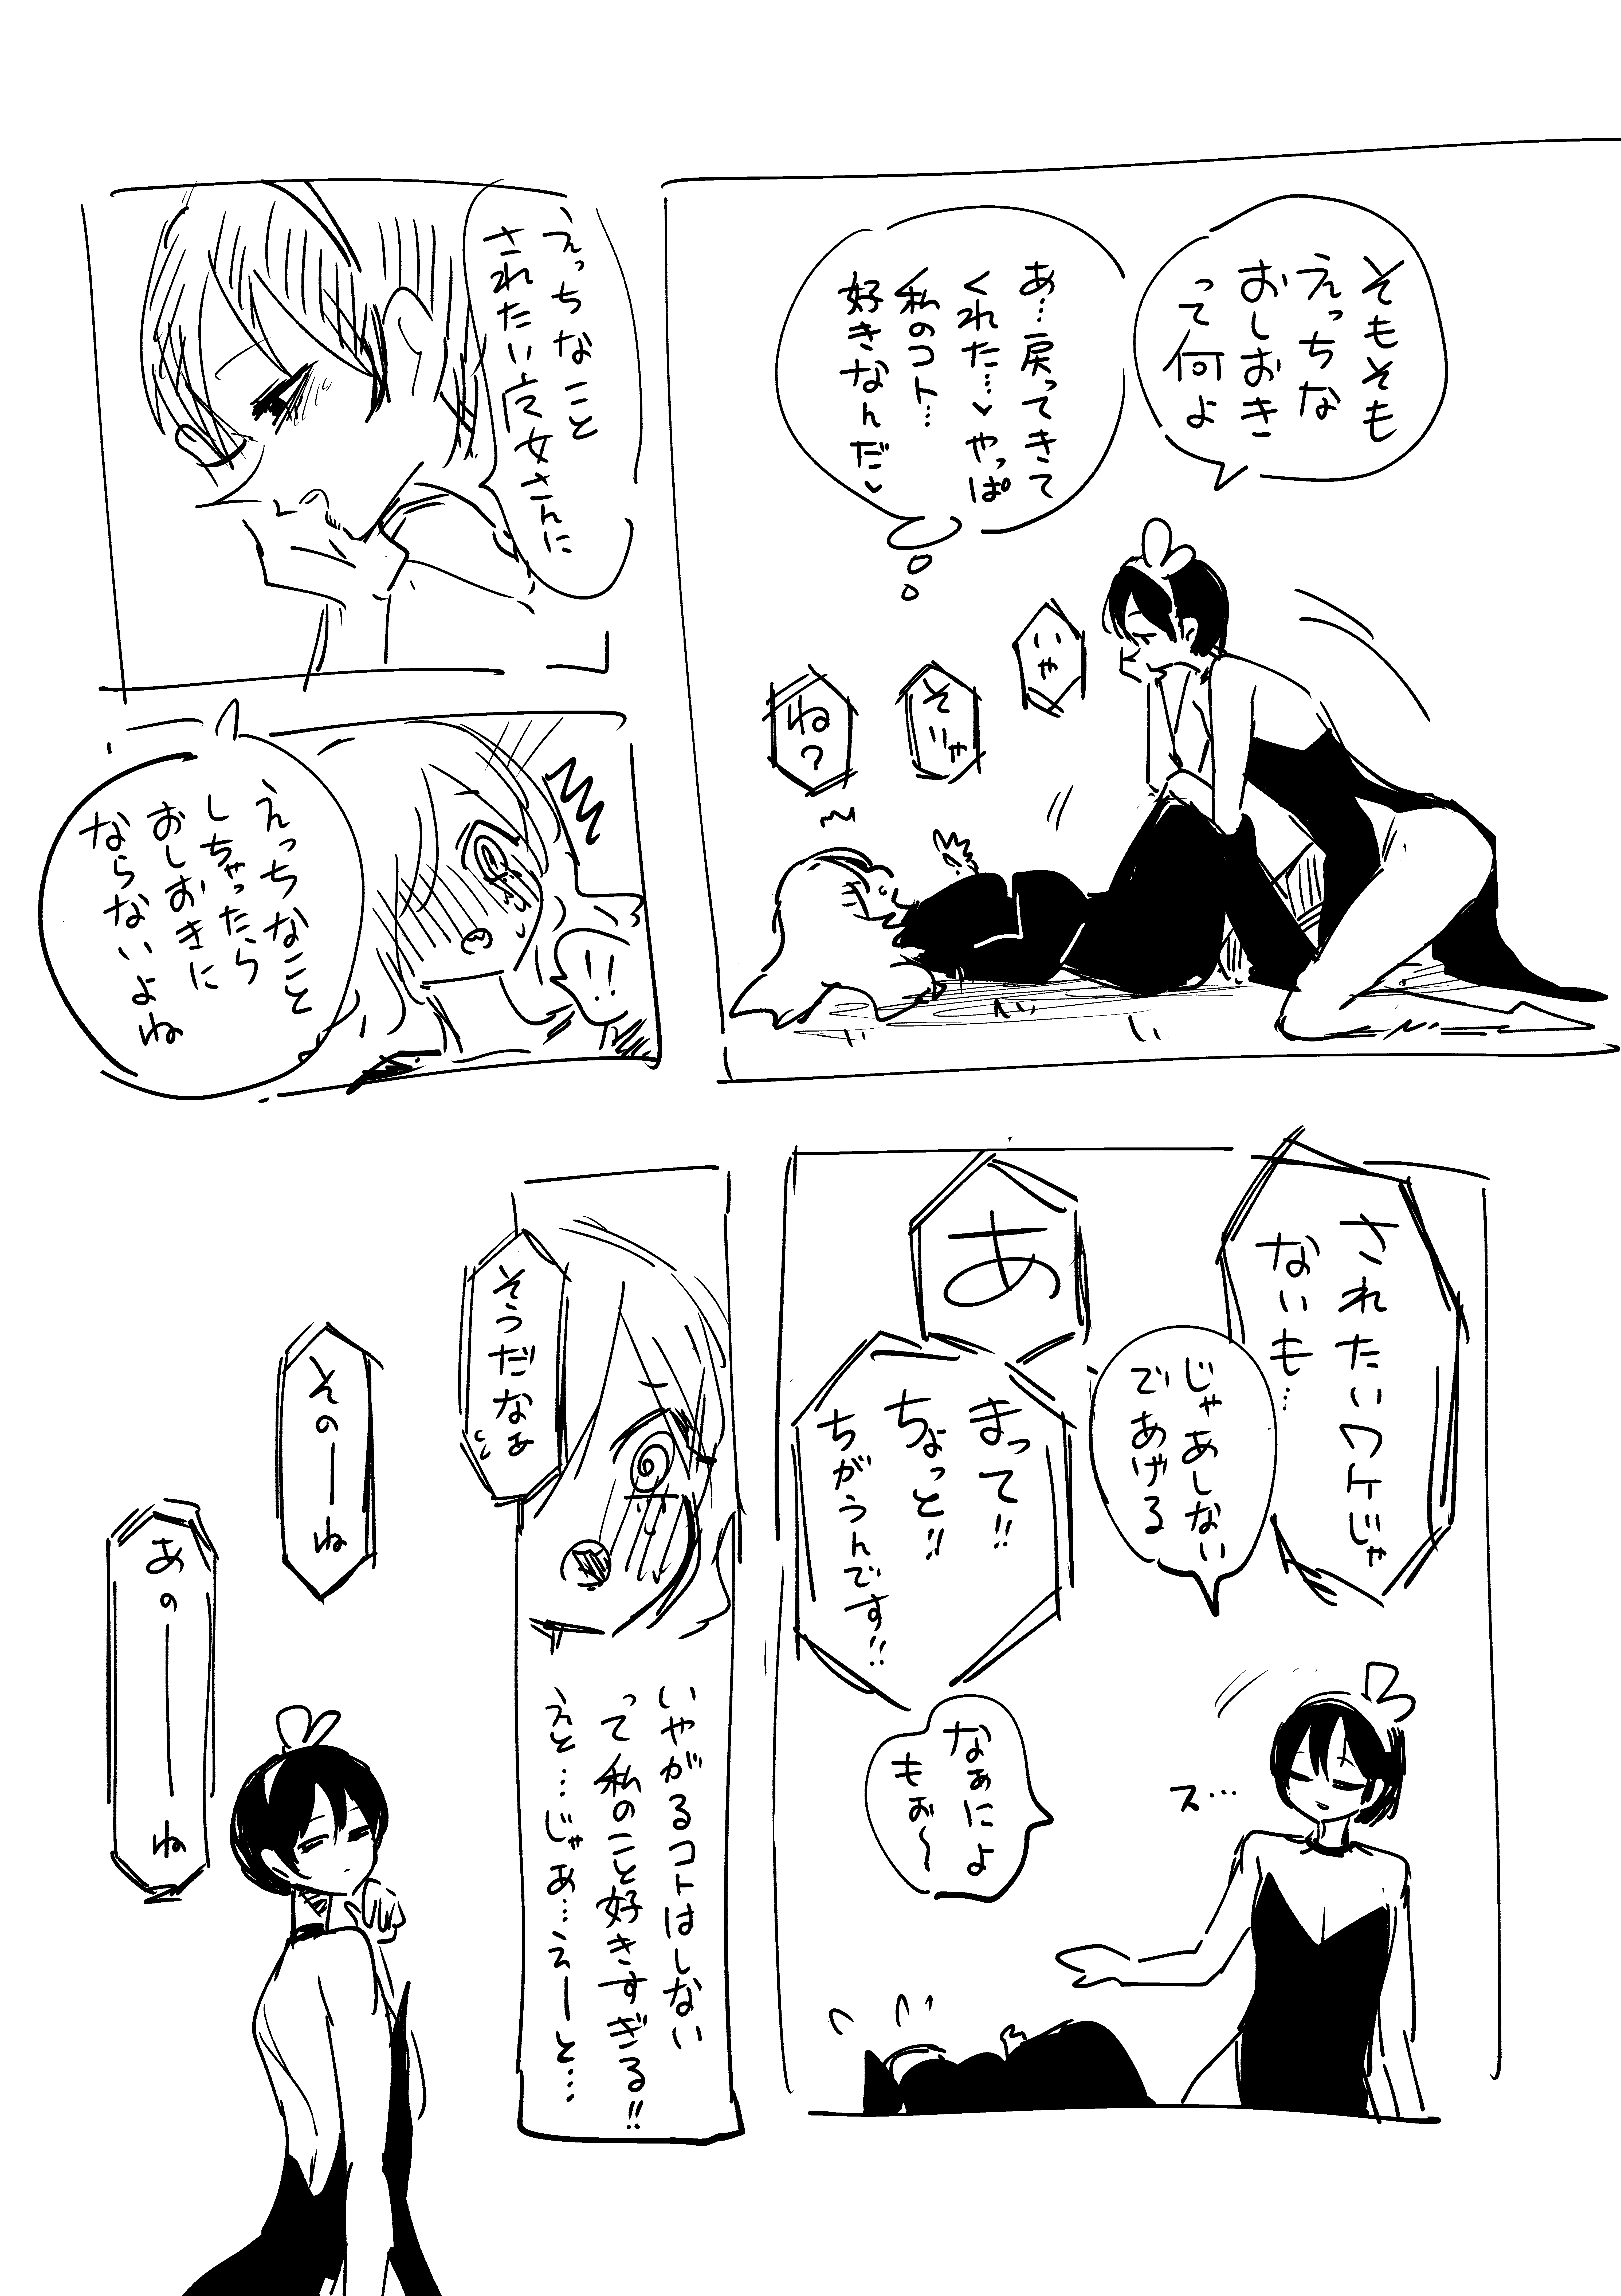 そもそも
えっちな
おしおき
って何よ
あ…戻ってきて
くれた…♥やっぱ
私のコト…
好きなんだ♥
いや
そりゃ
ね?
えっちなこと
されたい
女さんに
!!
えっちなこと
しちゃったら
おしおきに
ならないよね
されたいワケじゃ
ないも…
じゃあしない
であげる
あ
まって!!
ちょっと!!
ちがうんです!!
なぁによ
もぉ〜
ス…
そうだなぁ
いやがるコトはしない
って私のこと好きすぎる!!
えと…じゃあ…えーと…
そのーね
あのーーね